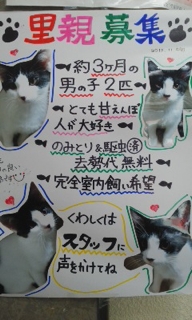 里親募集
約3ヶ月の
男の子2匹
とても甘えんぼ
人が大好き
のみとり&駆虫済
去勢代無料
完全室内飼い希望
くわしくは
スタッフに
声をかけてね